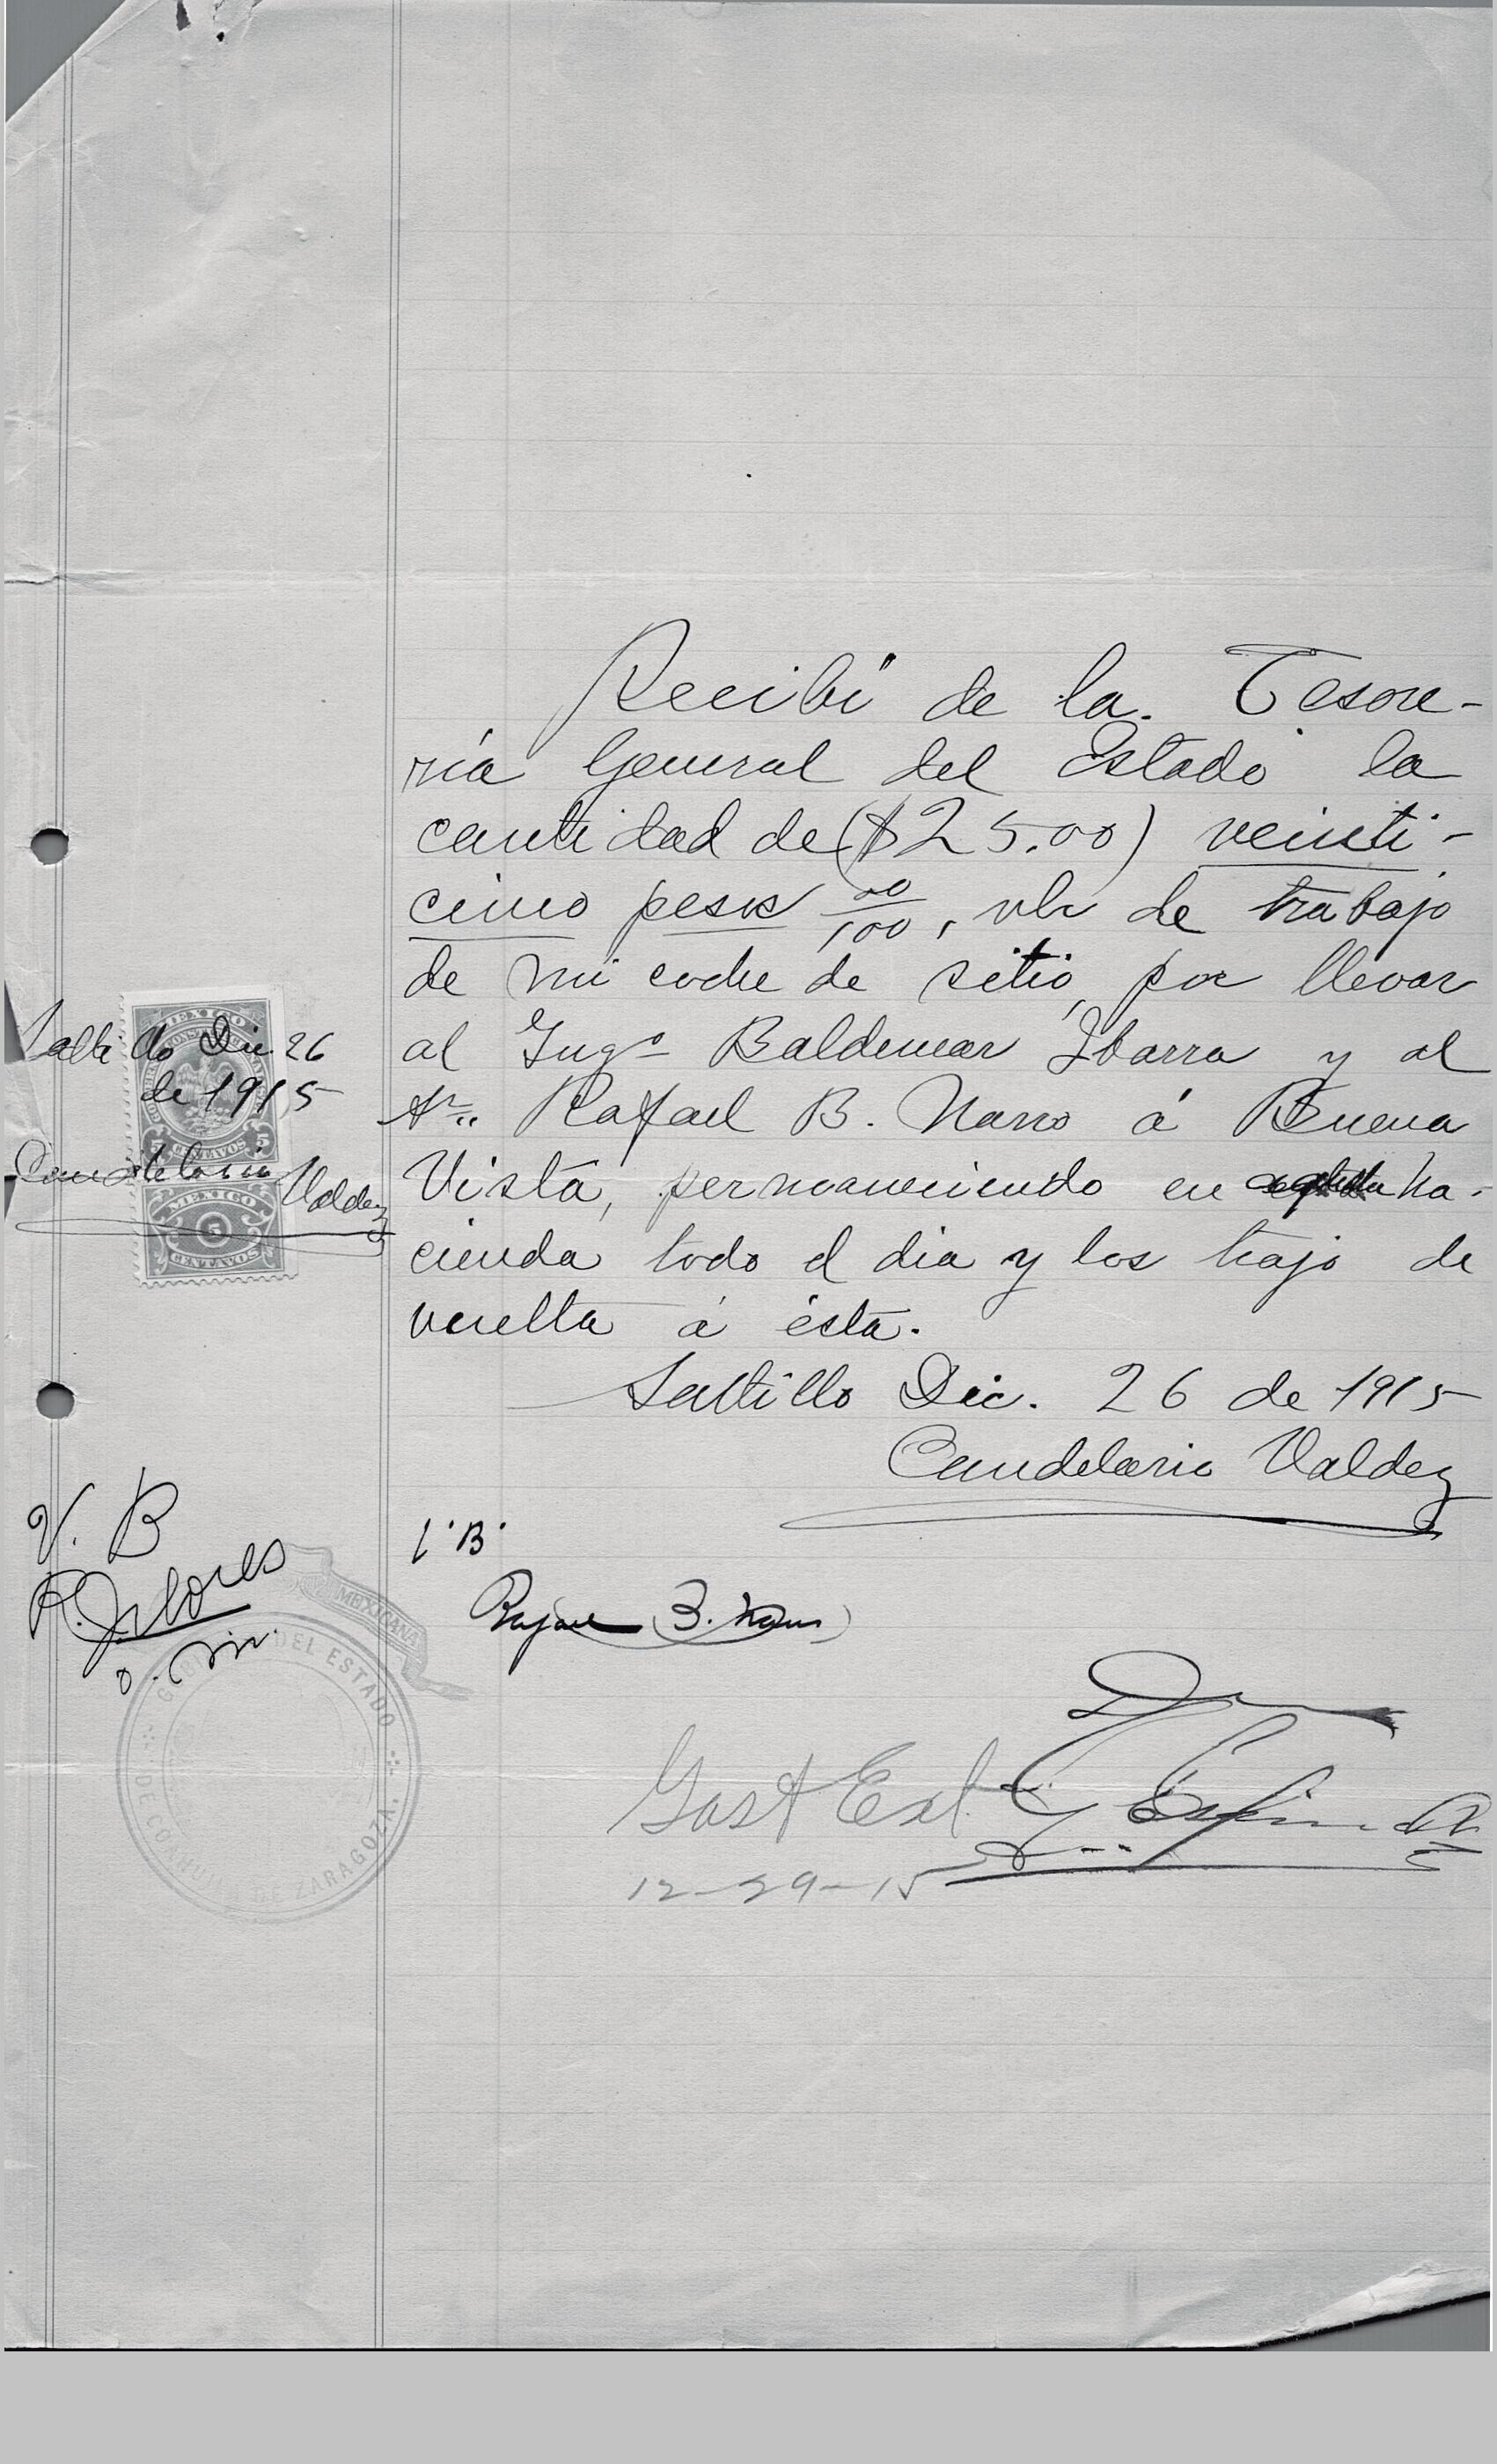 Recibí de la. Tesore-
ría General del Estado la
cantidad de ($25.00) veinti-
cinco pesos 00/100, vlr de trabajo
de mi coche de sitio, por llevar
al Ingº Baldemar Ibarra y al
Sr. Rafael B. Narro á Buena
Vista, permaneciendo en ha-
cienda todo el dia y los trajo de
vuelta á ésta.
Saltillo Dic. 26 de 1915
Candelario Valdez
Saltillo Dic 26
de 1915
Candelario Valdez
MEXICO
5 CENTAVOS 5
MEXICO
5
CENTAVOS
V. B
R. Flores
V. B.
Rafael B. Narro
MEXICANA
DEL ESTADO
DE COAHUILA DE ZARAGOZA
Gast Ext.
12-29-15